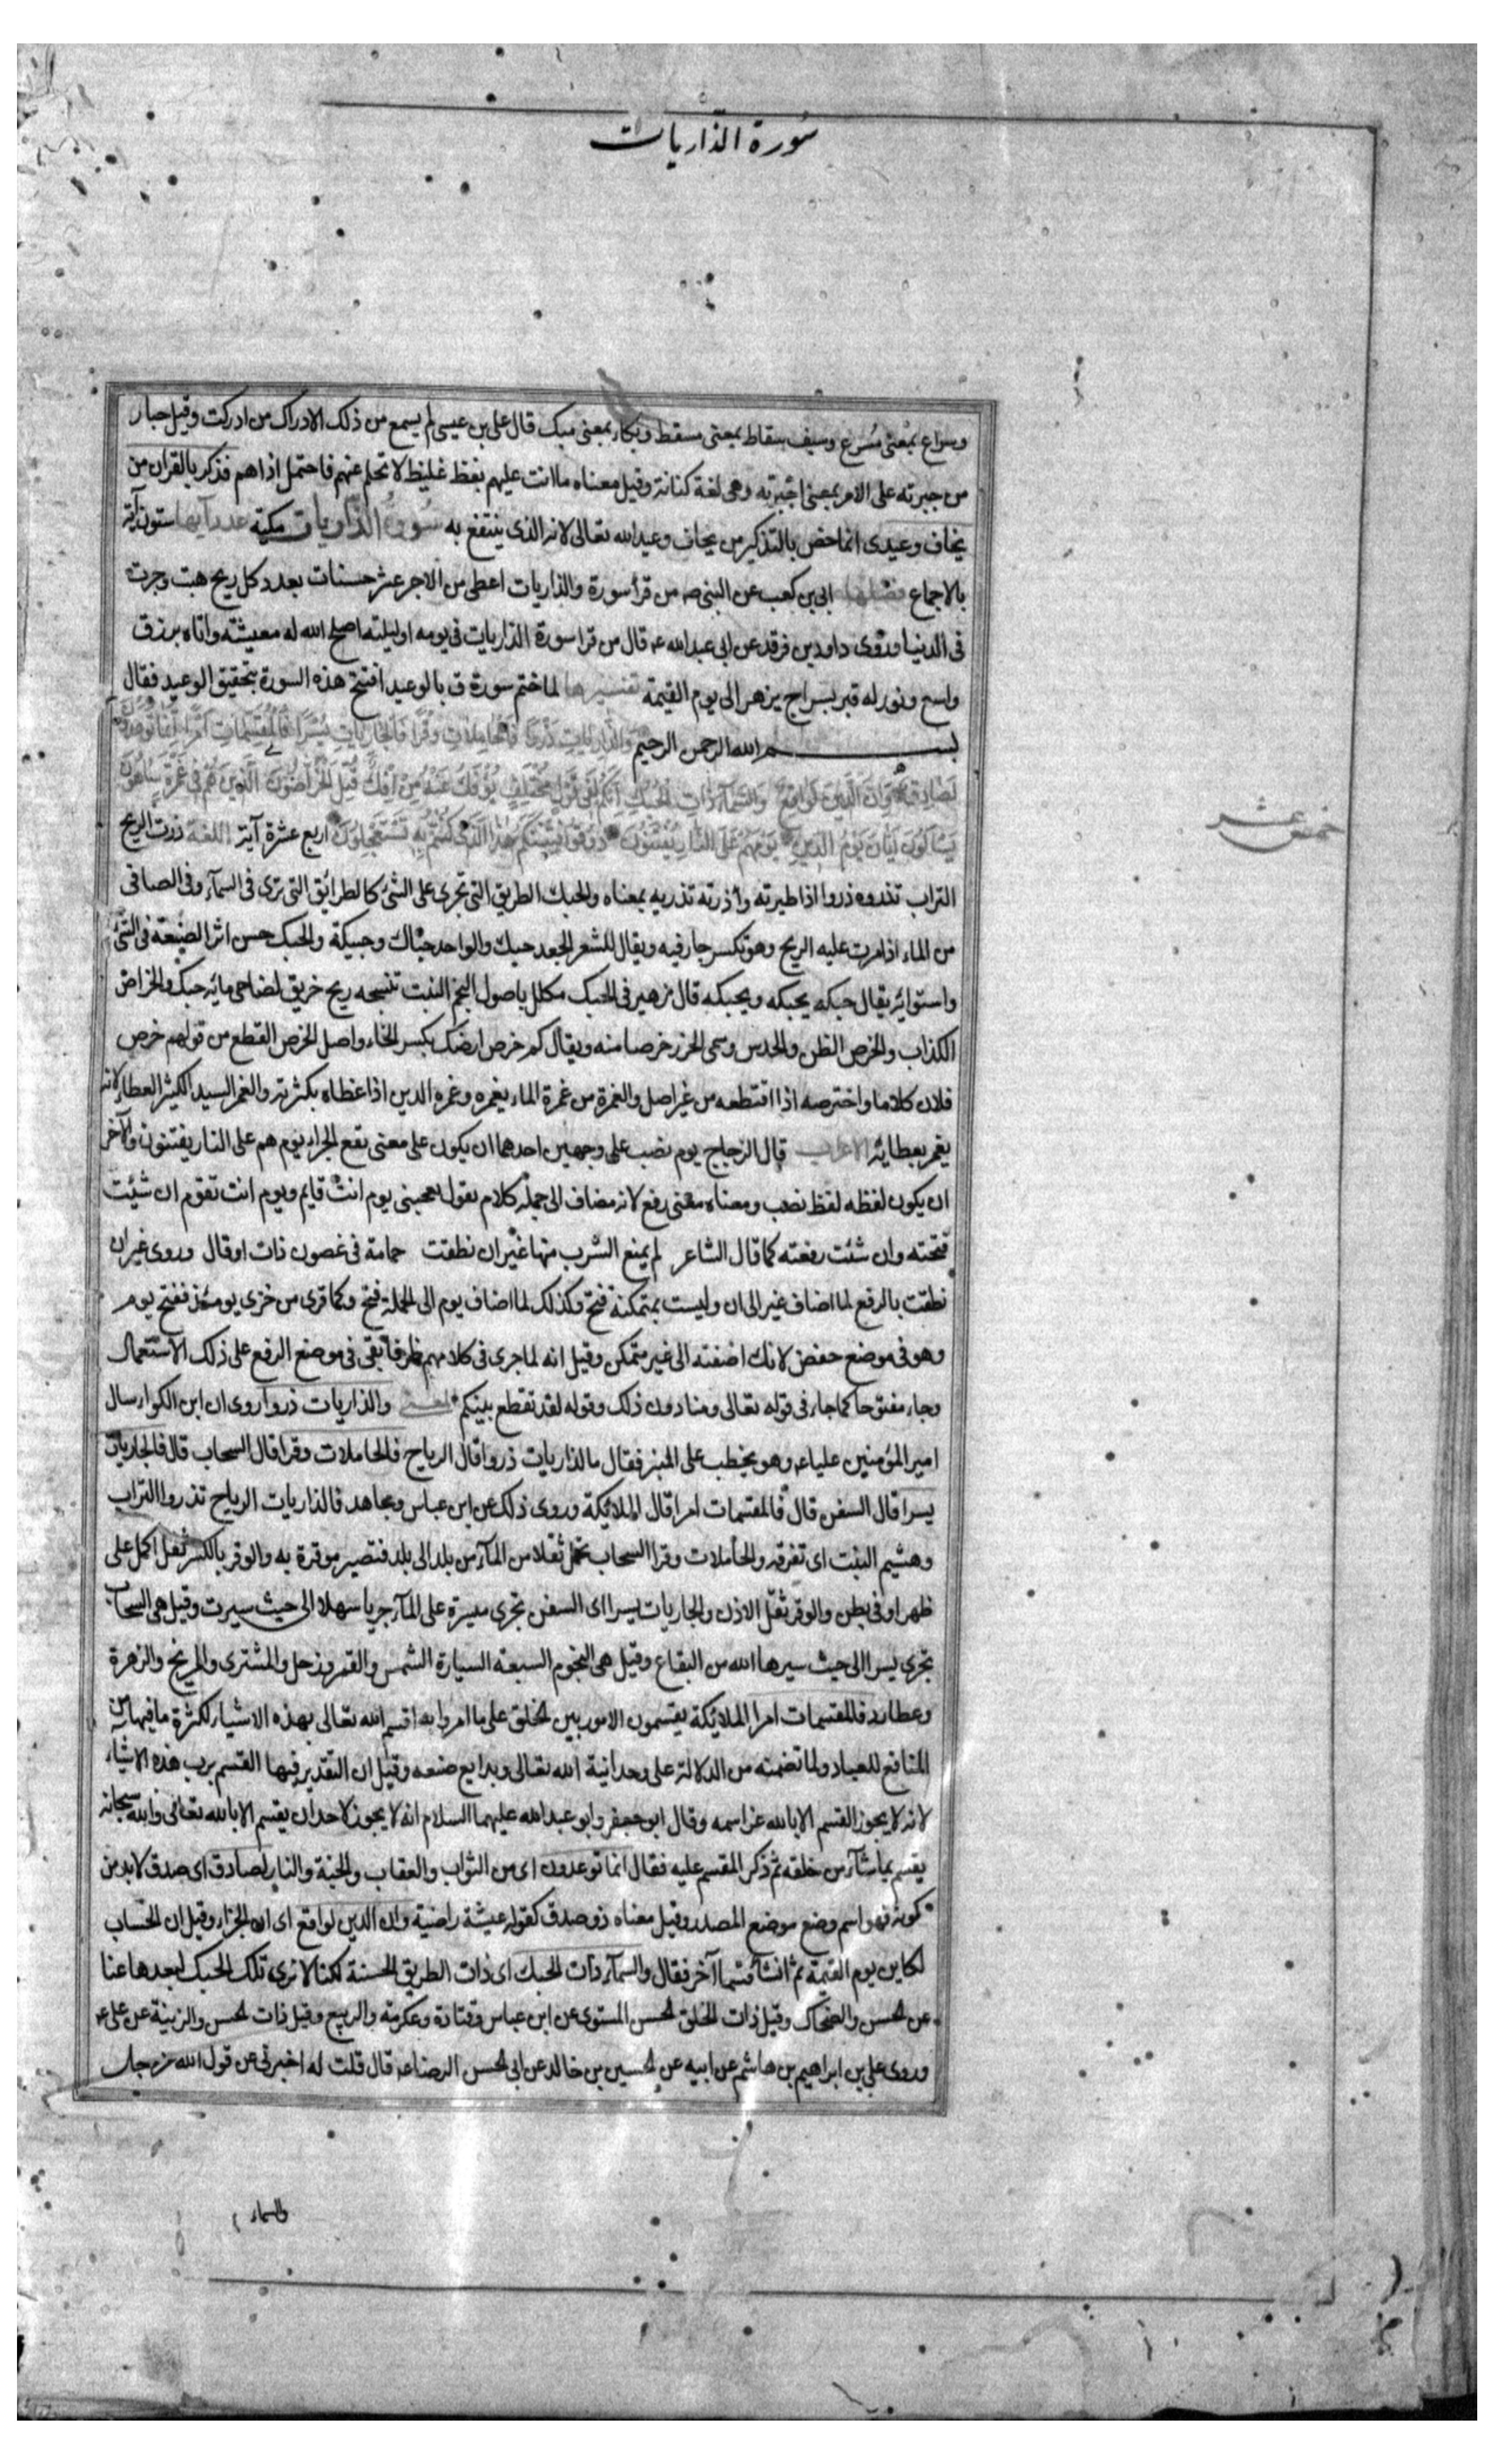 سورة الذاريات
وسراع بمعنى مسرع وسيف سقاط بمعنى مسقط وبكاء بمعنى مبك قال على بن عيسى لم يسمع من ذلك الا دراك من ادركت وقيل جبار
من جبرته على الامر بمعنى اجبرته وهى لغة كنانة وقيل معناه ما انت عليهم بفظ غليظ لا تحلم عنهم فاحتمل اذاهم فذكر بالقران من
يخاف وعيدى انما خص بالتذكير من يخاف وعيد الله تعالى لانه الذى ينتفع به سورة الذاريات مكية عدد آيها ستون آية
بالاجماع فضلها ابى بن كعب عن النبى صه من قرأ سورة والذاريات اعطى من الاجر عشر حسنات بعدد كل ريح هبت وجرت
فى الدنيا وروى داود بن فرقد عن ابى عبد الله عه قال من قرا سورة الذاريات فى يومه او ليلته اصلح الله له معيشته واتاه برزق
واسع ونور له قبره بسراج يزهر الى يوم القيمة تفسيرها لما ختم سورة ق بالوعيد افتتح هذه السورة بتحقيق الوعيد فقال
بسم الله الرحمن الرحيم والذاريات ذروا فالحاملات وقرا فالجاريات يسرا فالمقسمات امرا انما توعدون
لصادق وان الدين لواقع والسمآء ذات الحبك انكم لفى قول مختلف يؤفك عنه من افك قتل الخراصون الذين هم فى غمرة ساهون
يسألون ايان يوم الدين يوم هم على النار يفتنون ذوقوا فتنتكم هذا الذى كنتم به تستعجلون اربع عشرة آية اللغة ذرت الريح
خمس عشر
التراب تذروه ذروا اذا طيرته وأذرته تذريه بمعناه والحبك الطريق التى تجرى على الشئ كالطرائق التى ترى فى السمآء وفى الصافى
من الماء اذا مرت عليه الريح وهو تكسر جار فيه ويقال للشعر الجعد حبك والواحد حباك وحبيكة والحبك حسن اثر الصنعة فى الشئ
واستوائه يقال حبكه يحبكه ويحبكه قال زهير فى الحبك مكلل باصول النجم النبت تنسجه ريح خريق لضاحى مائه حبك والخراص
الكذاب والخرص الظن والحدس وسمى الحزر خرصا منه ويقال كم خرص ارضك بكسر الخاء واصل الخرص القطع من قولهم خرص
فلان كلاما واخترصه اذا اقتطعه من غير اصل والغمرة من غمرة الماء يغمره وغمره الدين اذا غطاه بكثرته والغمر السيد الكثير العطاء لانه
يغمر بعطائه الاعراب قال الزجاج يوم نصب على وجهين احدهما ان يكون على معنى يقع الجزاء يوم هم على النار يفتنون والآخر
ان يكون لفظه لفظ نصب ومعناه معنى رفع لانه مضاف الى جملة كلام تقول يعجبنى يوم انت قايم ويوم انت تقوم ان شئت
فتحته وان شئت رفعته كما قال الشاعر لم يمنع الشرب منها غير ان نطقت حمامة فى غصون ذات اوقال وروى غير ان
نطقت بالرفع لما اضاف غير الى ان وليست بمتمكنة فتح وكذلك لما اضاف يوم الى الجملة فتح وكما قرى من خزى يومئذ ففتح يوم
وهو فى موضع خفض لانك اضفته الى غير متمكن وقيل انه لما جرى فى كلامهم ظرفا بقى فى موضع الرفع على ذلك الاستعمال
وجاء مفتوحا كما جاء فى قوله تعالى ومنا دون ذلك وقوله لقد تقطع بينكم المعنى والذاريات ذروا روى ان ابن الكوا سال
امير المؤمنين عليا عه وهو يخطب على المنبر فقال ما الذاريات ذروا قال الرياح فالحاملات وقرا قال السحاب قال فالجاريات
يسرا قال السفن قال فالمقسمات امرا قال الملائكة وروى ذلك عن ابن عباس ومجاهد فالذاريات الرياح تذروا التراب
وهشيم النبت اى تفرقه والحاملات وقرا السحاب تحمل ثقلا من المآء من بلد الى بلد فتصير موقرة به والوقر بالكسر ثقل الحمل على
ظهر او فى بطن والوقر ثقل الاذن والجاريات يسرا اى السفن تجرى ميسرة على المآء جريا سهلا الى حيث سيرت وقيل هى السحاب
تجرى يسرا الى حيث سيرها الله من البقاع وقيل هى النجوم السبعة السيارة الشمس والقمر وزحل والمشترى والمريخ والزهرة
وعطارد فالمقسمات امرا الملائكة يقسمون الامور بين الخلق على ما امروا به اقسم الله تعالى بهذه الاشياء لكثرة ما فيها من
المنافع للعباد ولما تضمنه من الدلالة على وحدانية الله تعالى وبدايع صنعه وقيل ان التقدير فيها القسم برب هذه الاشياء
لانه لا يجوز القسم الا بالله عز اسمه وقال ابو جعفر وابو عبد الله عليهما السلام انه لا يجوز لاحد ان يقسم الا بالله تعالى والله سبحانه
يقسم بما شآء من خلقه ثم ذكر المقسم عليه فقال انما توعدون اى من الثواب والعقاب والجنة والنار لصادق اى صدق لابد من
كونه فهو اسم وضع موضع المصدر وقيل معناه ذو صدق كقوله عيشة راضية وان الدين لواقع اى ان الجزاء وقيل ان الحساب
لكاين يوم القيمة ثم انشأ قسما آخر فقال والسمآء ذات الحبك اى ذات الطريق الحسنة لكنا لا نرى تلك الحبك لبعدها عنا
عن الحسن والضحاك وقيل ذات الخلق الحسن المستوى عن ابن عباس وقتادة وعكرمة والربيع وقيل ذات الحسن والزينة عن على عه
وروى على بن ابراهيم بن هاشم عن ابيه عن الحسين بن خالد عن ابى الحسن الرضا عه قال قلت له اخبرنى عن قول الله عز وجل
والسماء